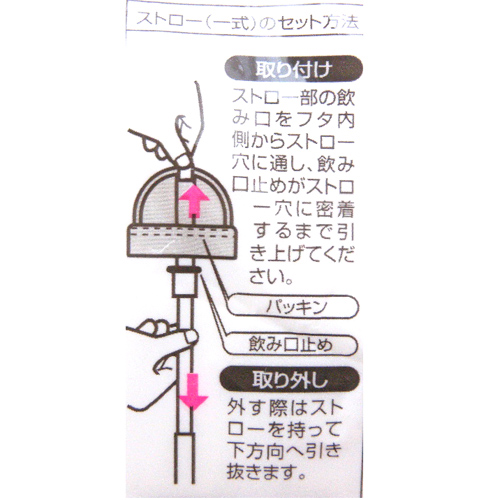 ストロー(一式)のセット方法
取り付け
ストロー部の飲
み口をフタ内
側からストロー
穴に通し、飲み
口止めがストロ
ー穴に密着
するまで引
き上げてくだ
さい。
パッキン
飲み口止め
取り外し
外す際はスト
ローを持って
下方向へ引き
抜きます。